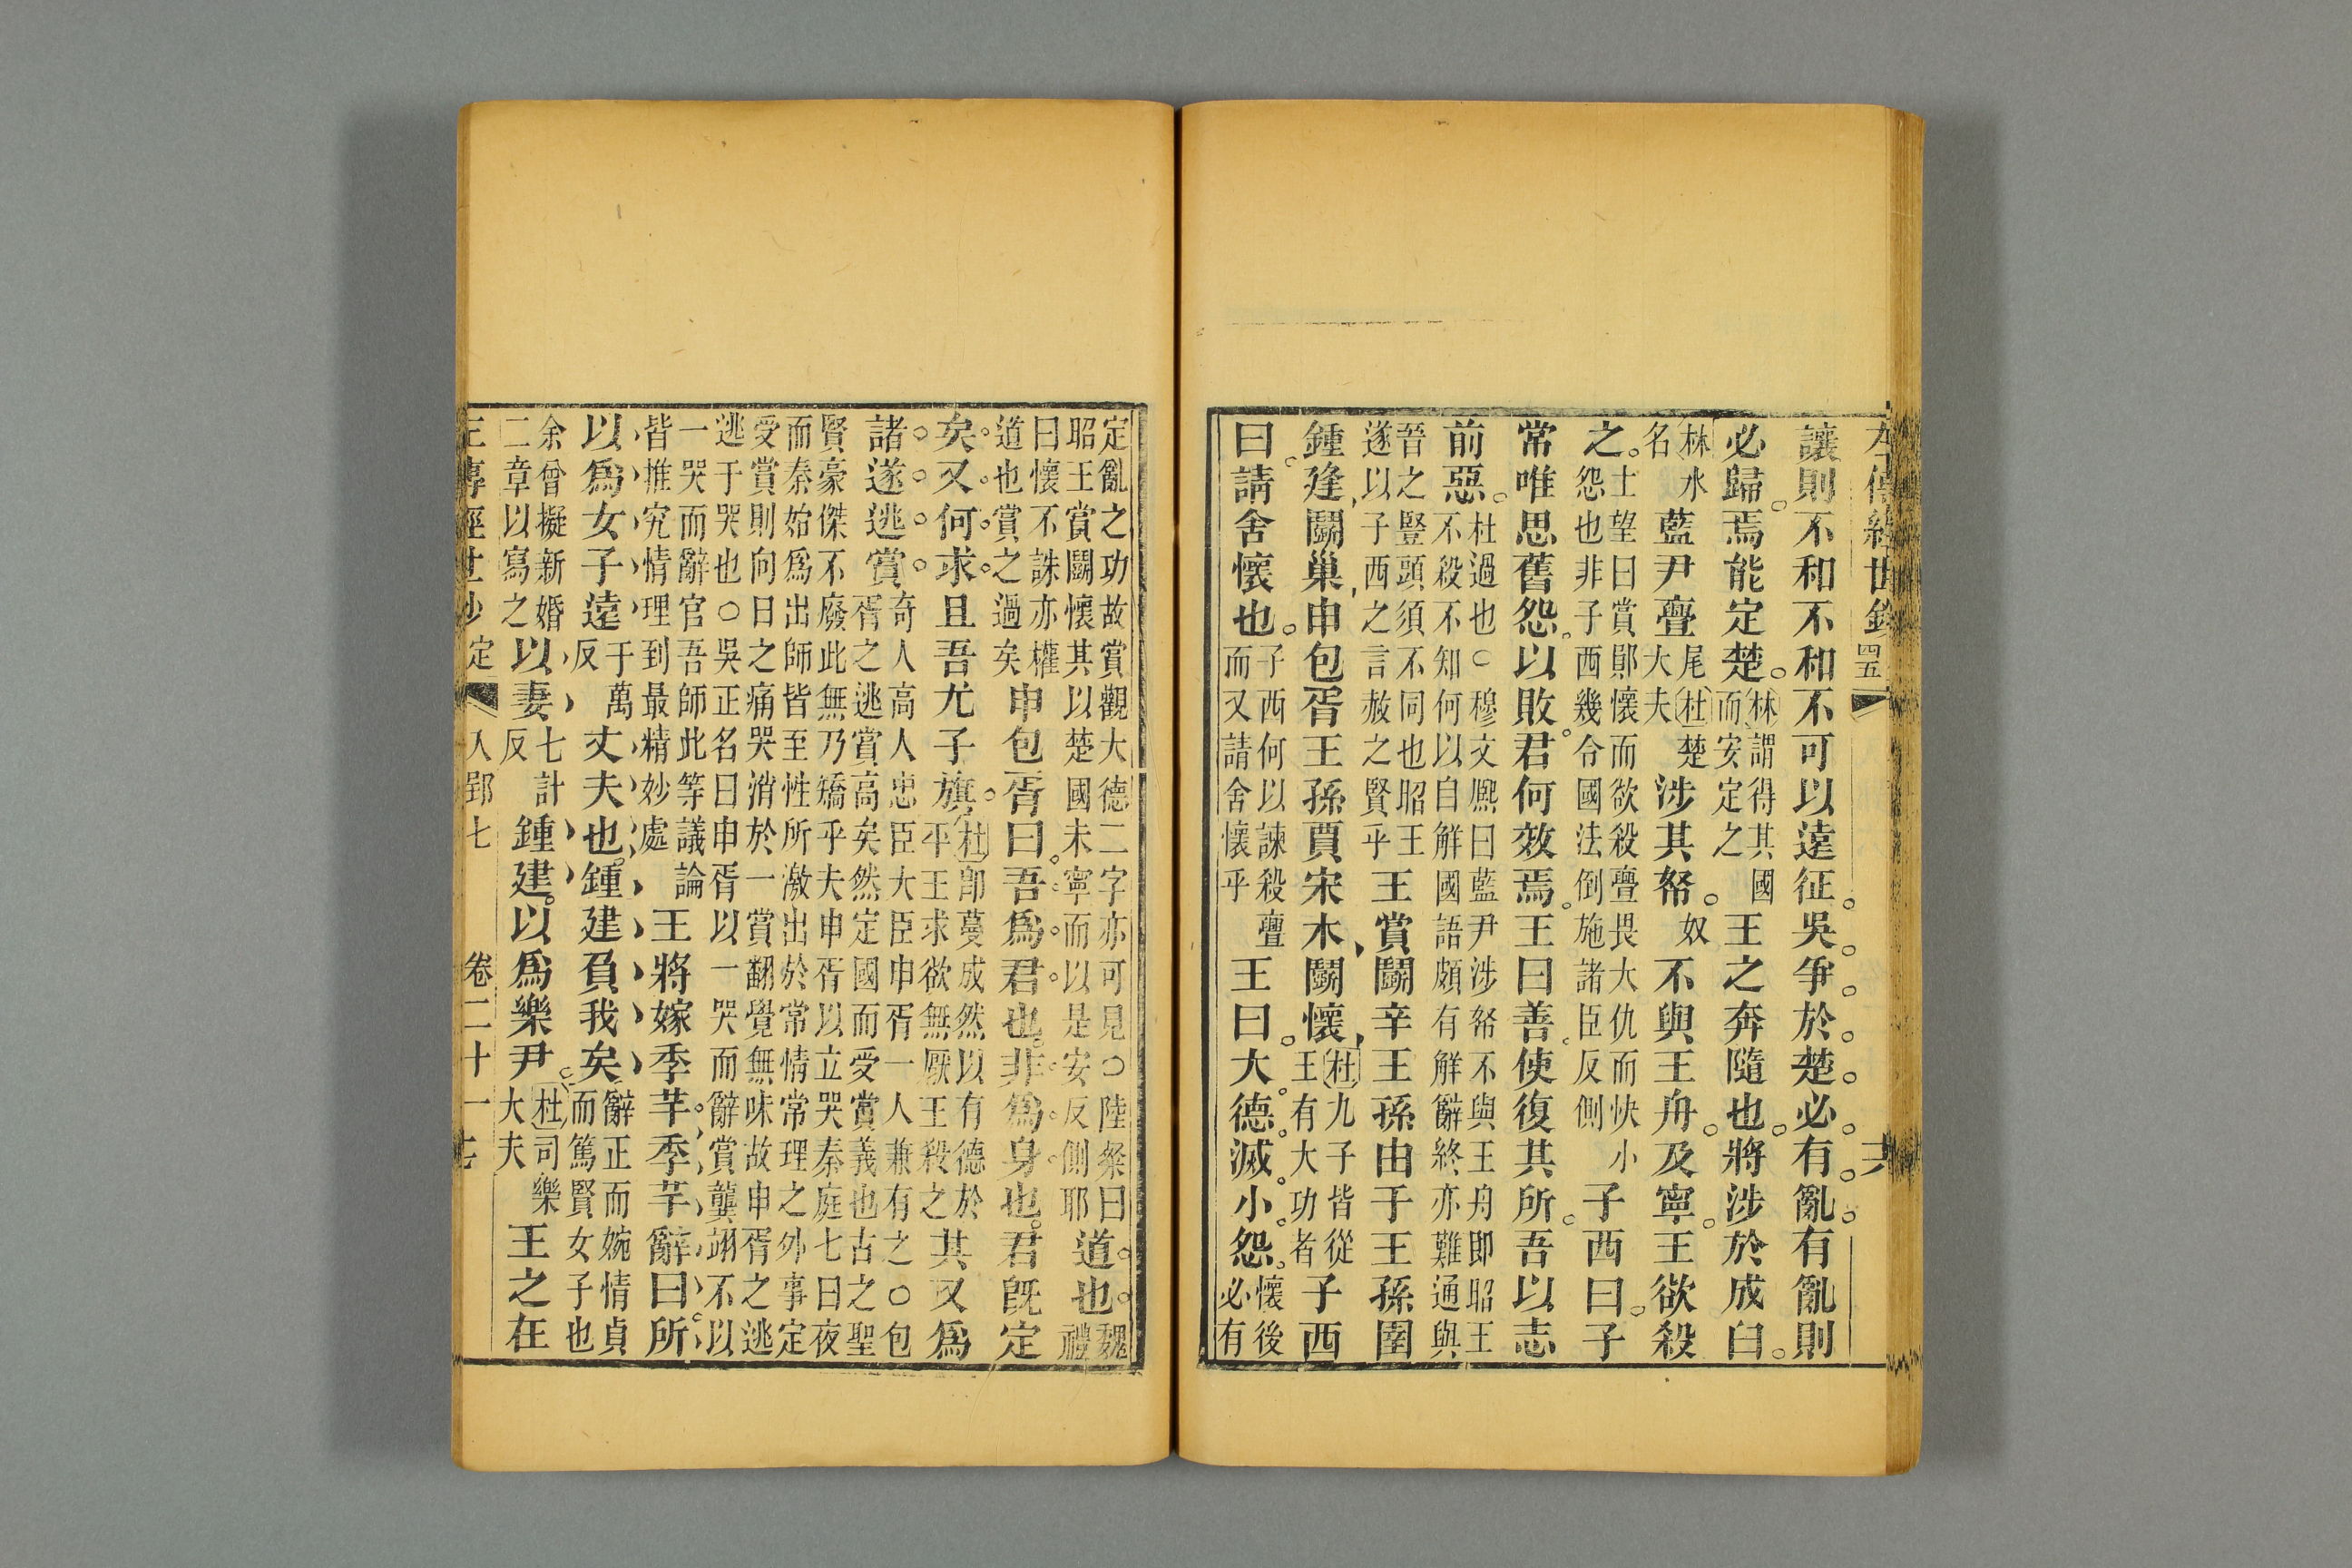 左傳經世鈔 四五
讓則不和不和不可以遠征吳爭於楚必有亂有亂則
必歸焉能定楚林謂得其國而安定之王之奔隨也將涉於成臼
林水名藍尹亹尾杜楚大夫涉其帑奴不與王舟及寧王欲殺
之士望曰賞鄖懷而欲殺亹畏大仇而快小怨也非子西幾令國法倒施諸臣反側子西曰子
常唯思舊怨以敗君何效焉王曰善使復其所吾以志
前惡杜過也○穆文熈曰藍尹涉帑不與王舟即昭王不殺不知何以自解國語頗有解辭終亦難通與
晉之豎頭須不同也昭王遂以子西之言赦之賢乎王賞鬭辛王孫由于王孫圉
鍾建鬭巢申包胥王孫賈宋木鬭懷杜九子皆從王有大功者子西
曰請舍懷也子西何以諫殺亹而又請舍懷乎王曰大德滅小怨懷後必有
定亂之功故賞觀大德二字亦可見○陸粲曰昭王賞鬭懷其以楚國未寧而以是安反側耶道也魏禮
曰懷不誅亦權道也賞之過矣申包胥曰吾爲君也非爲身也君旣定
矣又何求且吾尤子旗杜卽蔓成然以有德於平王求欲無厭王殺之其又爲
諸遂逃賞奇人高人忠臣大臣申胥一人兼有之○包胥之逃賞高矣然定國而受賞義也古之聖
賢豪傑不廢此無乃矯乎夫申胥以立哭秦庭七日夜而秦始爲出師皆至性所激出於常情常理之外事定
受賞則向日之痛哭消於一賞翻覺無味故申胥之逃逃于哭也○吳正名曰申胥以一哭而辭賞龔翊不以
一哭而辭官吾師此等議論皆推究情理到最精妙處王將嫁季芊季芊辭曰所
以爲女子遠于萬反丈夫也鍾建負我矣辭正而婉情貞而篤賢女子也
余曾擬新婚二章以寫之以妻七計反鍾建以爲樂尹杜司樂大夫王之在
左傳經世鈔 定 入郢七 卷二十一 十七